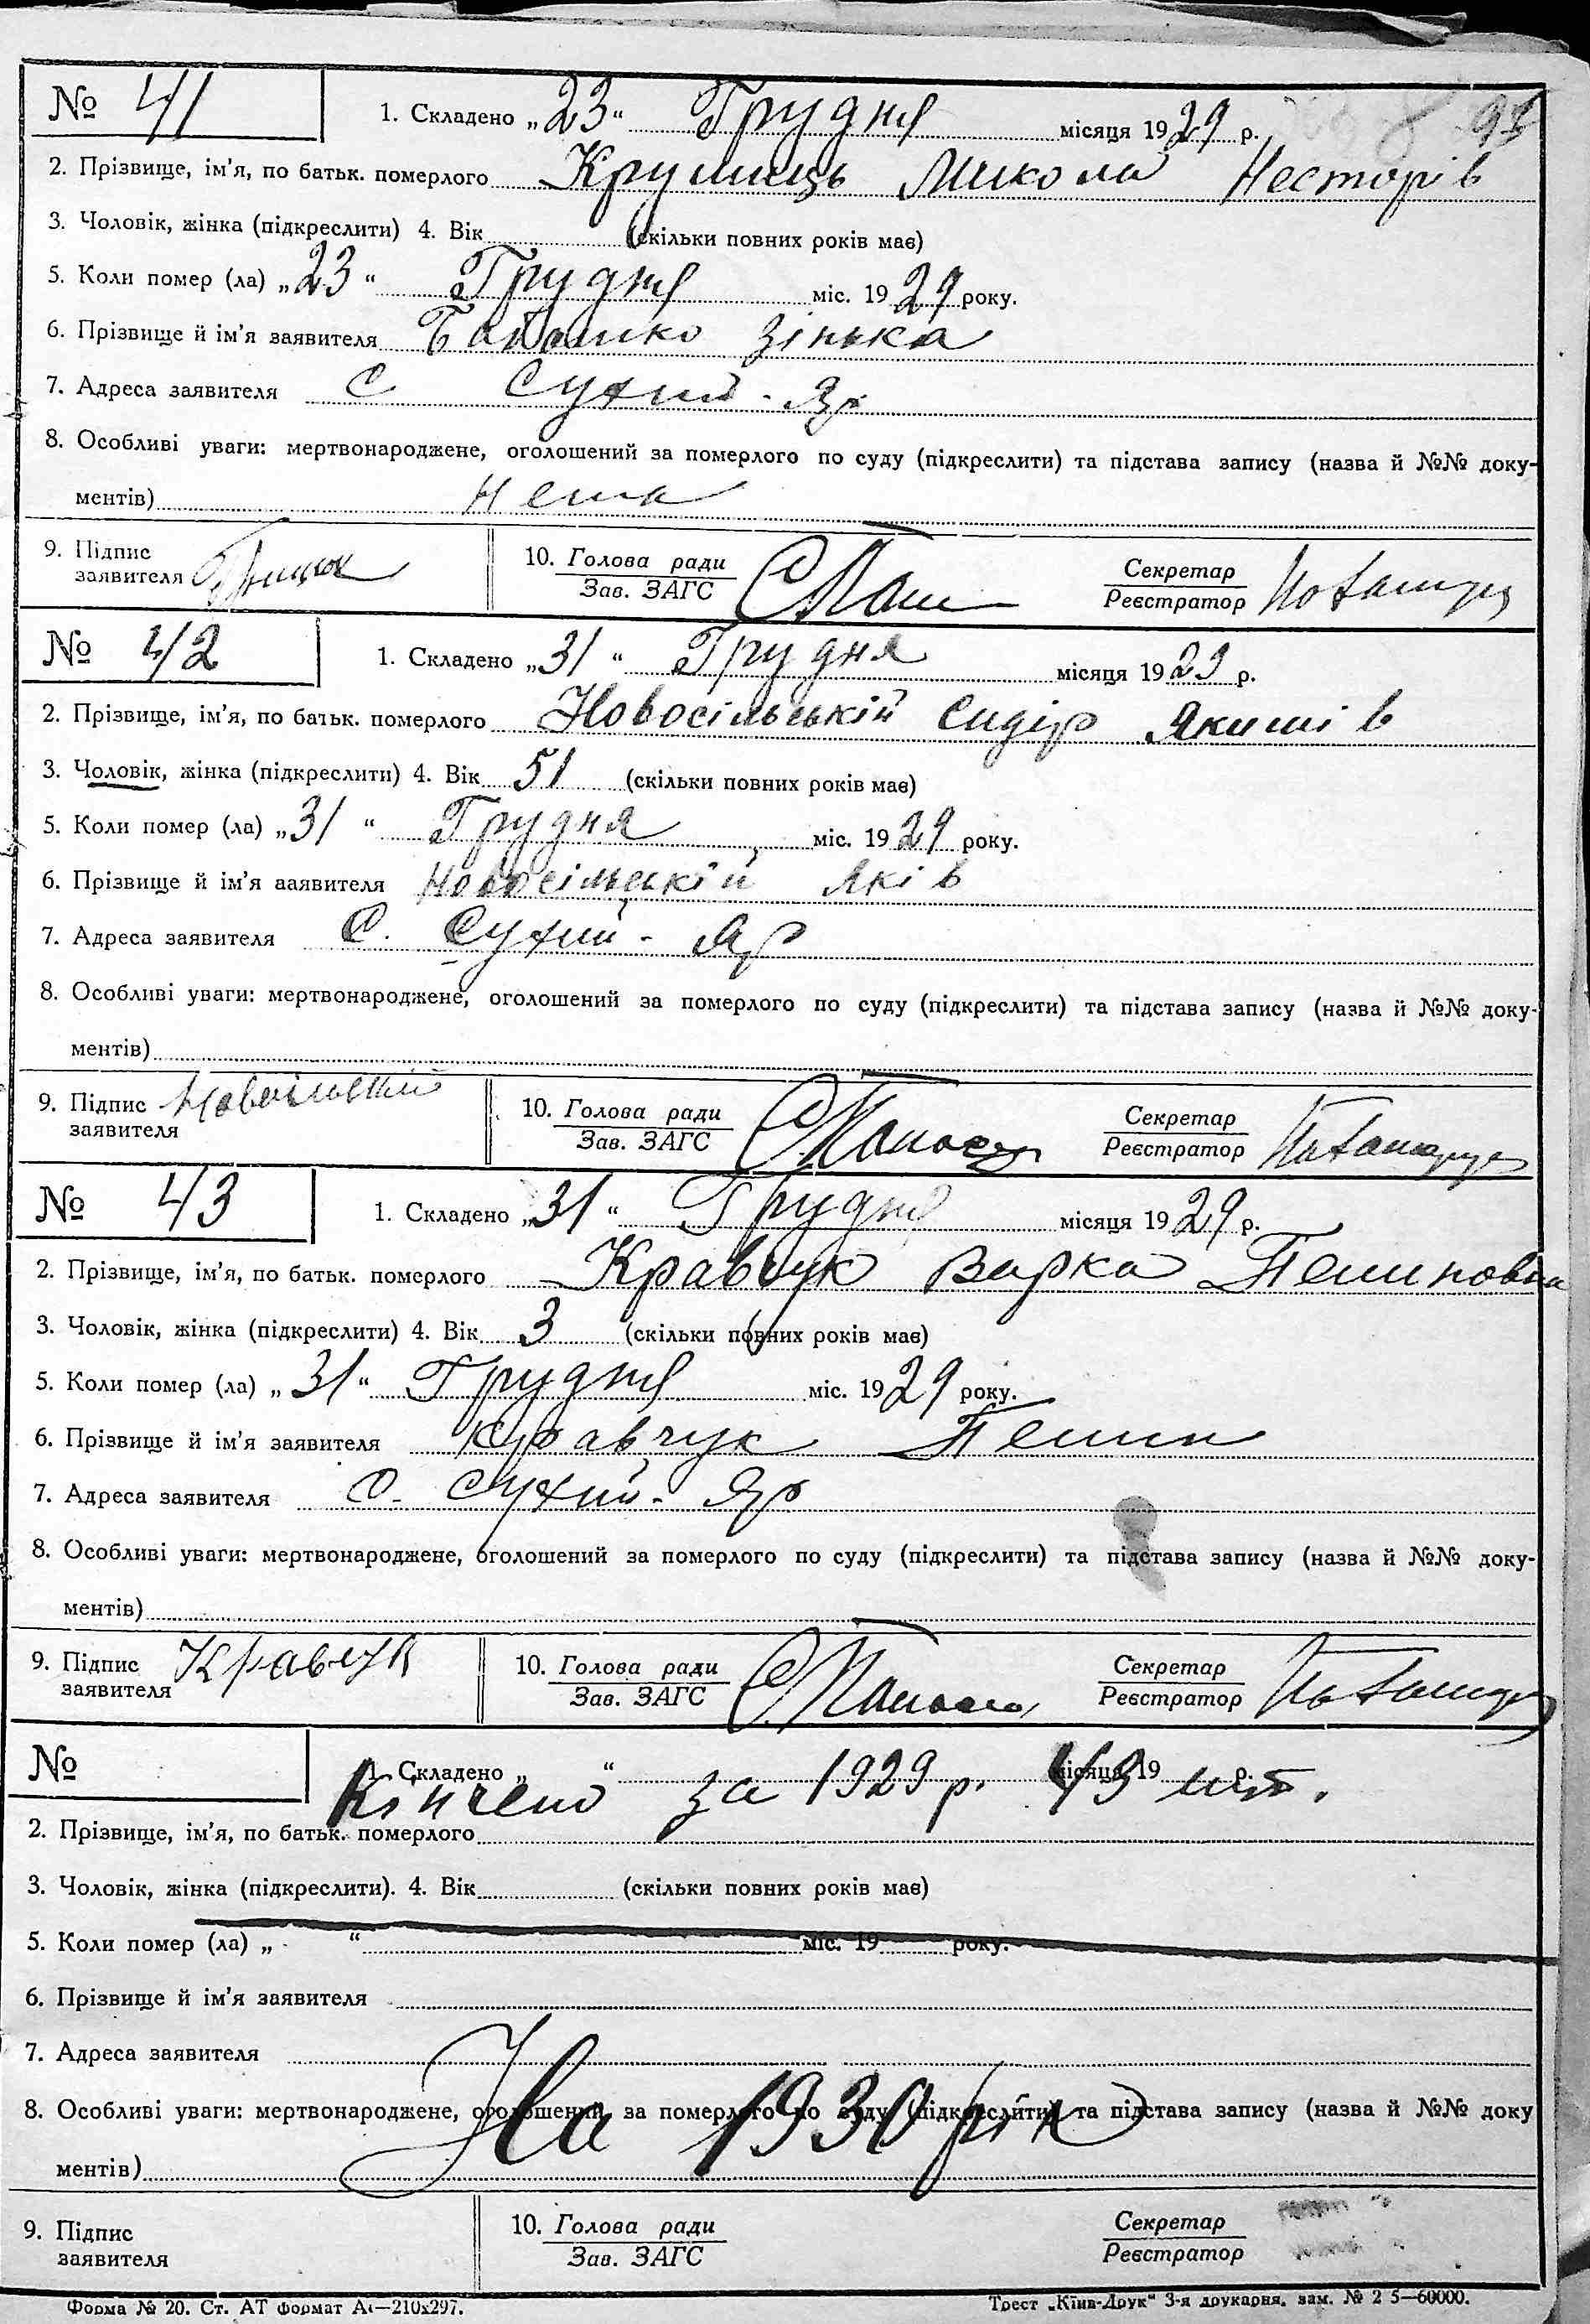 № 41 1. Складено „23“ Грудня місяця 1929 р. 95
2. Прізвище, ім’я, по батьк. померлого Микола Несторів
3. Чоловік, жінка (підкреслити) 4. Вік (скільки повних років має)
5. Коли помер (ла) „23“ Грудня міс. 1929 року.
6. Прізвище й ім’я заявителя Зінька
7. Адреса заявителя С Сухий - Яр
8. Особливі уваги: мертвонароджене, оголошений за померлого по суду (підкреслити) та підстава запису (назва й №№ доку-
ментів) Нема
9. Підпис заявителя 10. Голова ради Зав. ЗАГС Секретар Реєстратор
№ 42 1. Складено „31“ Грудня місяця 1929 р.
2. Прізвище, ім’я, по батьк. померлого Новосільській Сидір Якимів
3. Чоловік, жінка (підкреслити) 4. Вік 51 (скільки повних років має)
5. Коли помер (ла) „31“ Грудня міс. 1929 року.
6. Прізвище й ім’я ааявителя Новосільській Яків
7. Адреса заявителя С. Сухий - Яр
8. Особливі уваги: мертвонароджене, оголошений за померлого по суду (підкреслити) та підстава запису (назва й №№ доку-
ментів)
9. Підпис заявителя Новосільській 10. Голова ради Зав. ЗАГС Секретар Реєстратор
№ 43 1. Складено „31“ Грудня місяця 1929 р.
2. Прізвище, ім’я, по батьк. померлого Кравчук Варка Пилиповна
3. Чоловік, жінка (підкреслити) 4. Вік 3 (скільки повних років має)
5. Коли помер (ла) „31“ Грудня міс. 1929 року.
6. Прізвище й ім’я заявителя Кравчук Пилип
7. Адреса заявителя С. Сухий - Яр
8. Особливі уваги: мертвонароджене, оголошений за померлого по суду (підкреслити) та підстава запису (назва й №№ доку-
ментів)
9. Підпис заявителя Кравчук 10. Голова ради Зав. ЗАГС Секретар Реєстратор
№ 1. Складено „ “ місяця 19 р.
Кінчено за 1929 р. 43 шт.
2. Прізвище, ім’я, по батьк. померлого
3. Чоловік, жінка (підкреслити). 4. Вік (скільки повних років має)
5. Коли помер (ла) „ “ міс. 19 року.
6. Прізвище й ім’я заявителя
7. Адреса заявителя
На 1930 рік
8. Особливі уваги: мертвонароджене, оголошений за померлого по суду (підкреслити) та підстава запису (назва й №№ доку
ментів)
9. Підпис заявителя 10. Голова ради Зав. ЗАГС Секретар Реєстратор
Форма № 20. Ст. АТ формат А4—210х297. Трест „Київ-Друк“ 3-я друкарня. зам. № 2 5—60000.